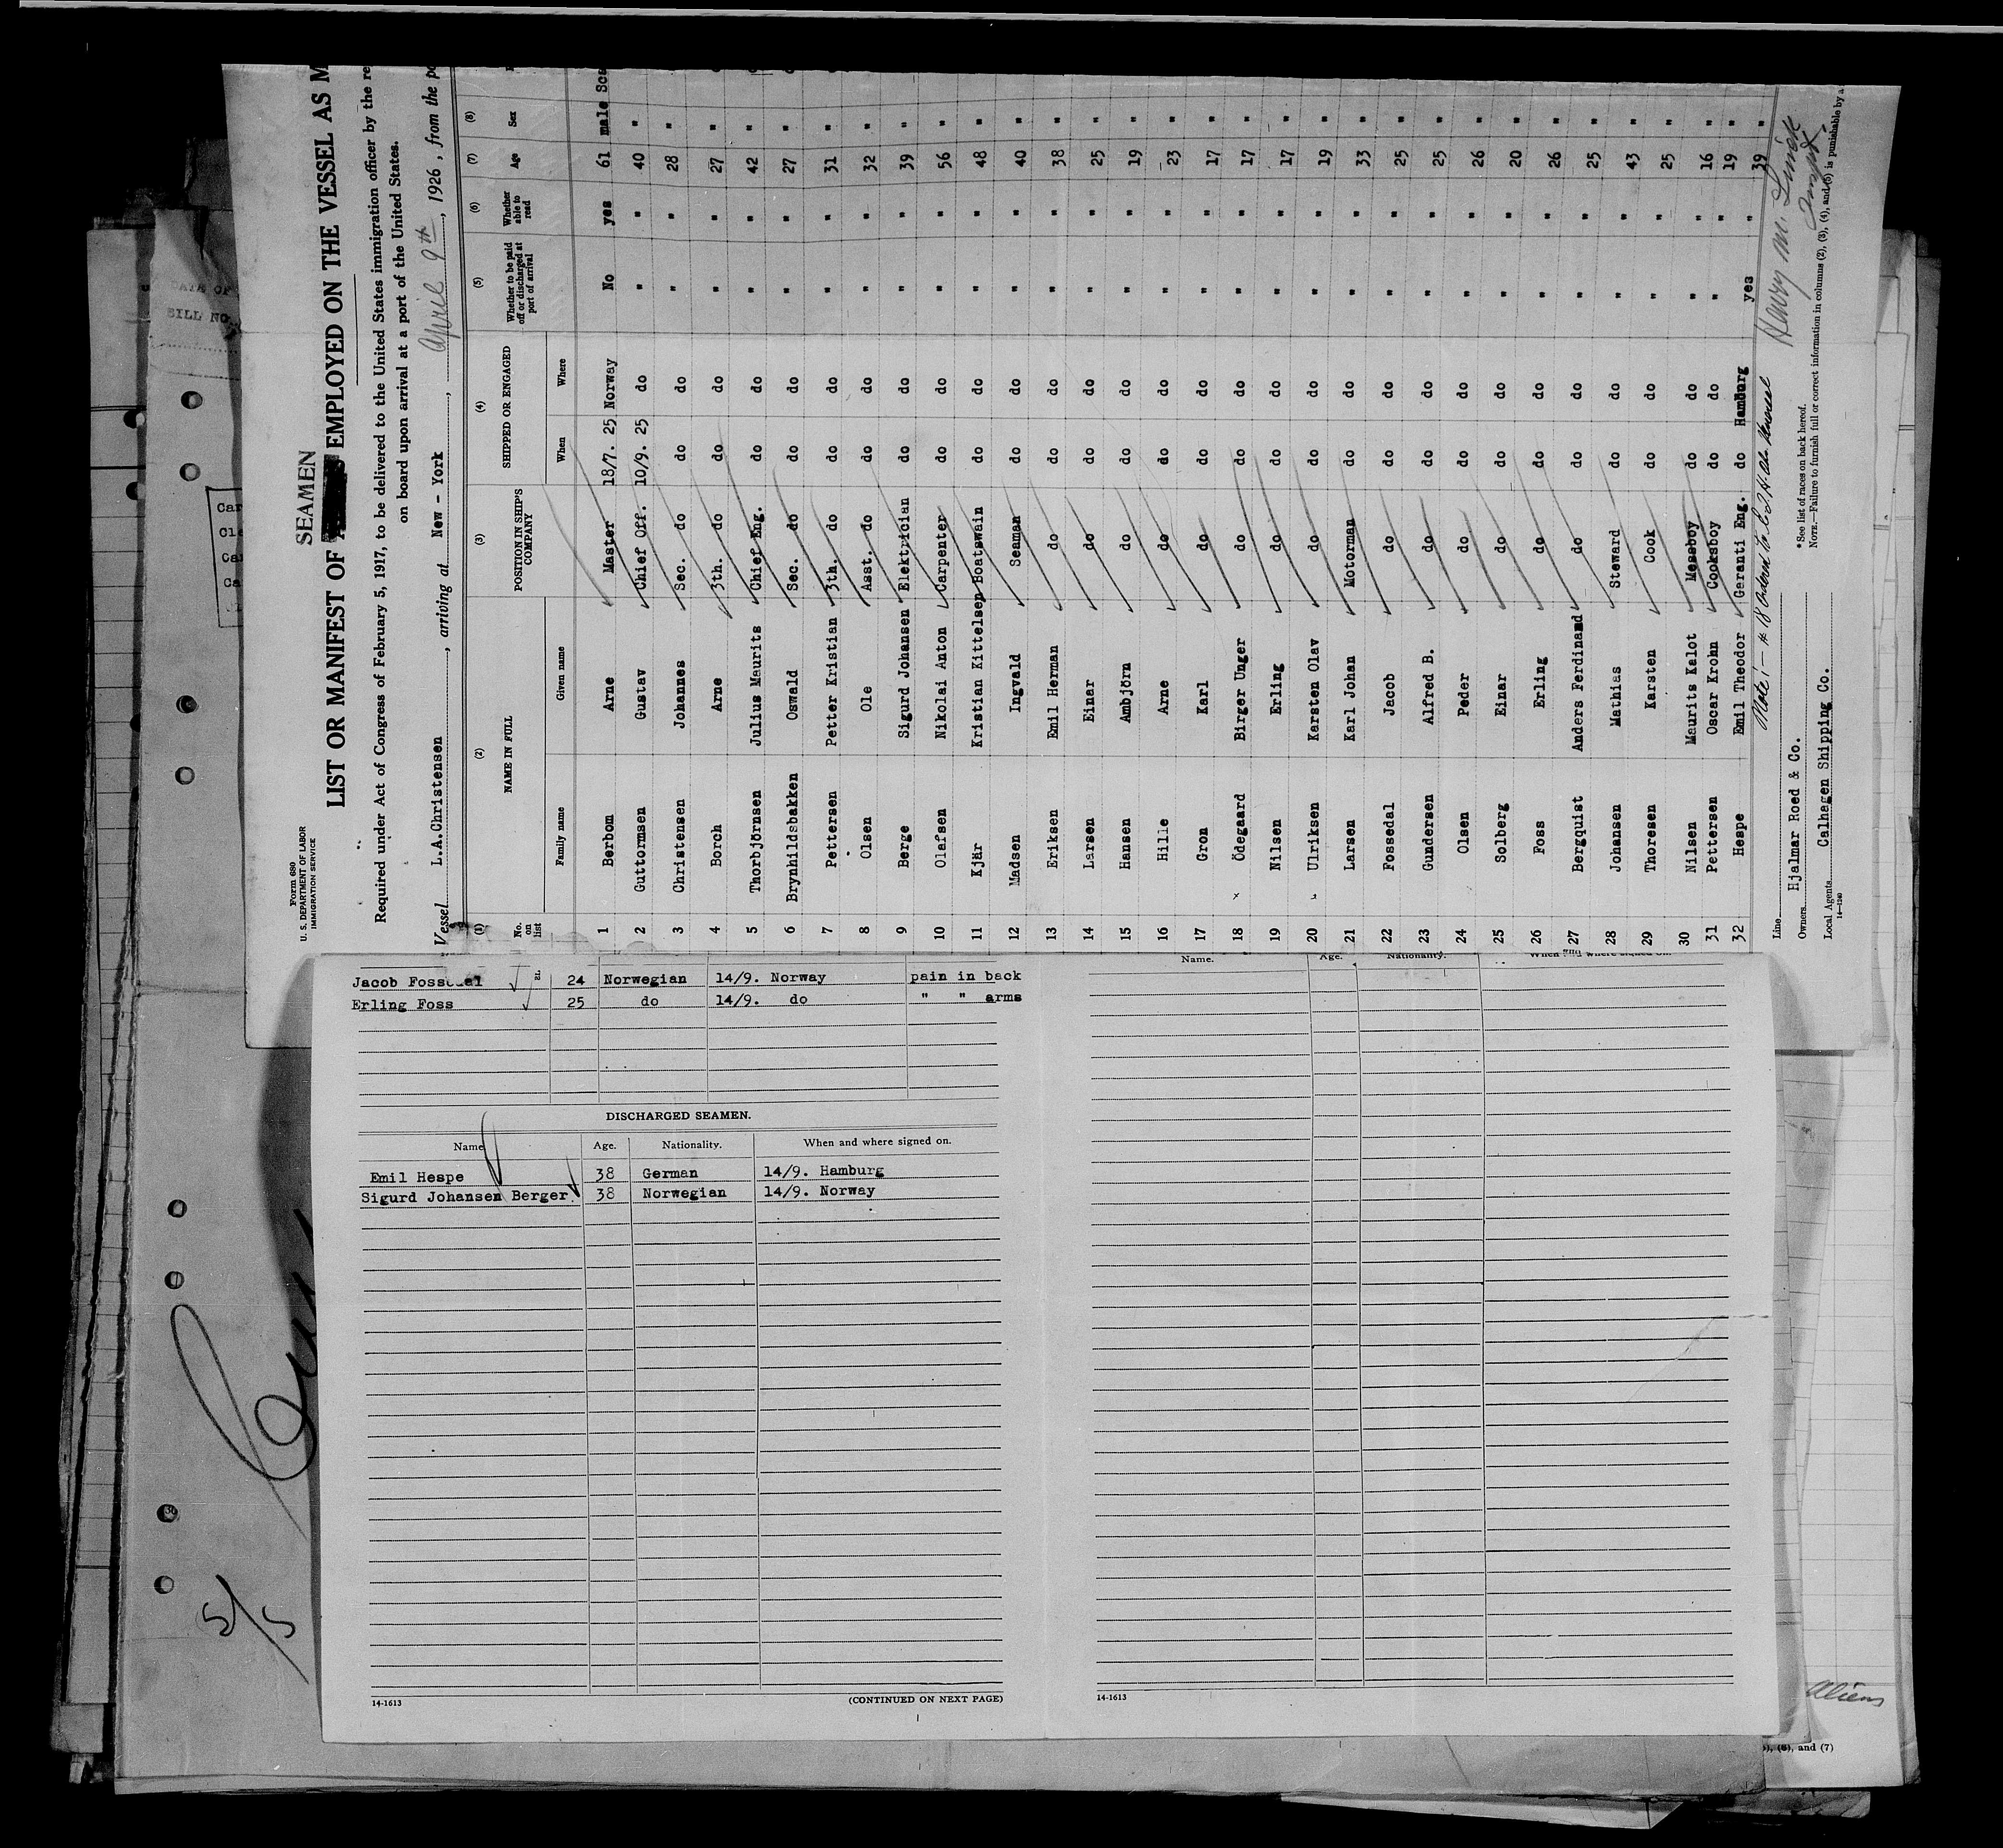 Form 680
U. S. DEPARTMENT OF LABOR
IMMIGRATION SERVICE
SEAMEN
LIST OR MANIFEST OF EMPLOYED ON THE VESSEL AS M
Required under Act of Congress of February 5, 1917, to be delivered to the United States immigration officer by the re
on board upon arrival at a port of the United States.
Vessel L.A.Christensen, arriving at New - York, April 9th, 1926, from the po
(1) (2) (3) (4) (5) (6) (7) (8)
No. on list NAME IN FULL POSITION IN SHIP'S COMPANY SHIPPED OR ENGAGED Whether to be paid off or discharged at port of arrival Whether able to read Age Sex
Family name Given name When Where
1 Berbom Arne Master 18/7. 25 Norway No yes 61 male Sca
2 Guttormsen Gustav Chief Off. 10/9. 25 do " " 40 "
3 Christensen Johannes Sec. do do do " " 28 "
4 Borch Arne 3th. do do do " " 27 "
5 Thorbjörnsen Julius Maurits Chief Eng. do do " " 42 "
6 Brynhildsbakken Oswald Sec. do do do " " 27 "
7 Pettersen Petter Kristian 3th. do do do " " 31 "
8 Olsen Ole Asst. do do do " " 32 "
9 Berge Sigurd Johansen Elektrician do do " " 39 "
10 Olafsen Nikolai Anton Carpenter do do " " 56 "
11 Kjär Kristian Kittelsen Boatswain do do " " 48 "
12 Madsen Ingvald Seaman do do " " 40 "
13 Eriksen Emil Herman do do do " " 38 "
14 Larsen Einar do do do " " 25 "
15 Hansen Ambjörn do do do " " 19 "
16 Hille Arne do do do " " 23 "
17 Gron Karl do do do " " 17 "
x 18 Ödegaard Birger Unger do do do " " 17 "
19 Nilsen Erling do do do " " 17 "
20 Ulriksen Karsten Olav do do do " " 19 "
21 Larsen Karl Johan Motorman do do " " 33 "
22 Fossedal Jacob do do do " " 25 "
23 Gundersen Alfred B. do do do " " 25 "
24 Olsen Peder do do do " " 26 "
25 Solberg Einar do do do " " 20 "
26 Foss Erling do do do " " 26 "
27 Bergquist Anders Ferdinand do do do " " 25 "
28 Johansen Mathias Steward do do " " 43 "
29 Thoresen Karsten Cook do do " " 25 "
30 Nilsen Maurits Kalot Messboy do do " " 16 "
31 Pettersen Oscar Krohn Cooksboy do do " " 19 "
32 Hespe Emil Theodor Geranti Eng. do Hamburg yes " 39 "
Note:— # 18 Ordered to
Line
Owners Hjalmar Roed & Co.
Local Agents Calhagen Shipping Co.
14-1240
*See list of races on back hereof.
NOTE.—Failure to furnish full or correct information in columns (2), (3), (4), and (5) is punishable by a
Jacob Fossedal 24 Norwegian 14/9. Norway pain in back
Erling Foss 25 do 14/9. do " " arms
DISCHARGED SEAMEN.
Name Age. Nationality. When and where signed on.
Emil Hespe 38 German 14/9. Hamburg
Sigurd Johansen Berger. 38 Norwegian 14/9. Norway
14-1613 (CONTINUED ON NEXT PAGE)
Name. Age. Nationality. When and where signed on.
14-1613
BILL NO.
5/5
Aliens
(6), and (7)